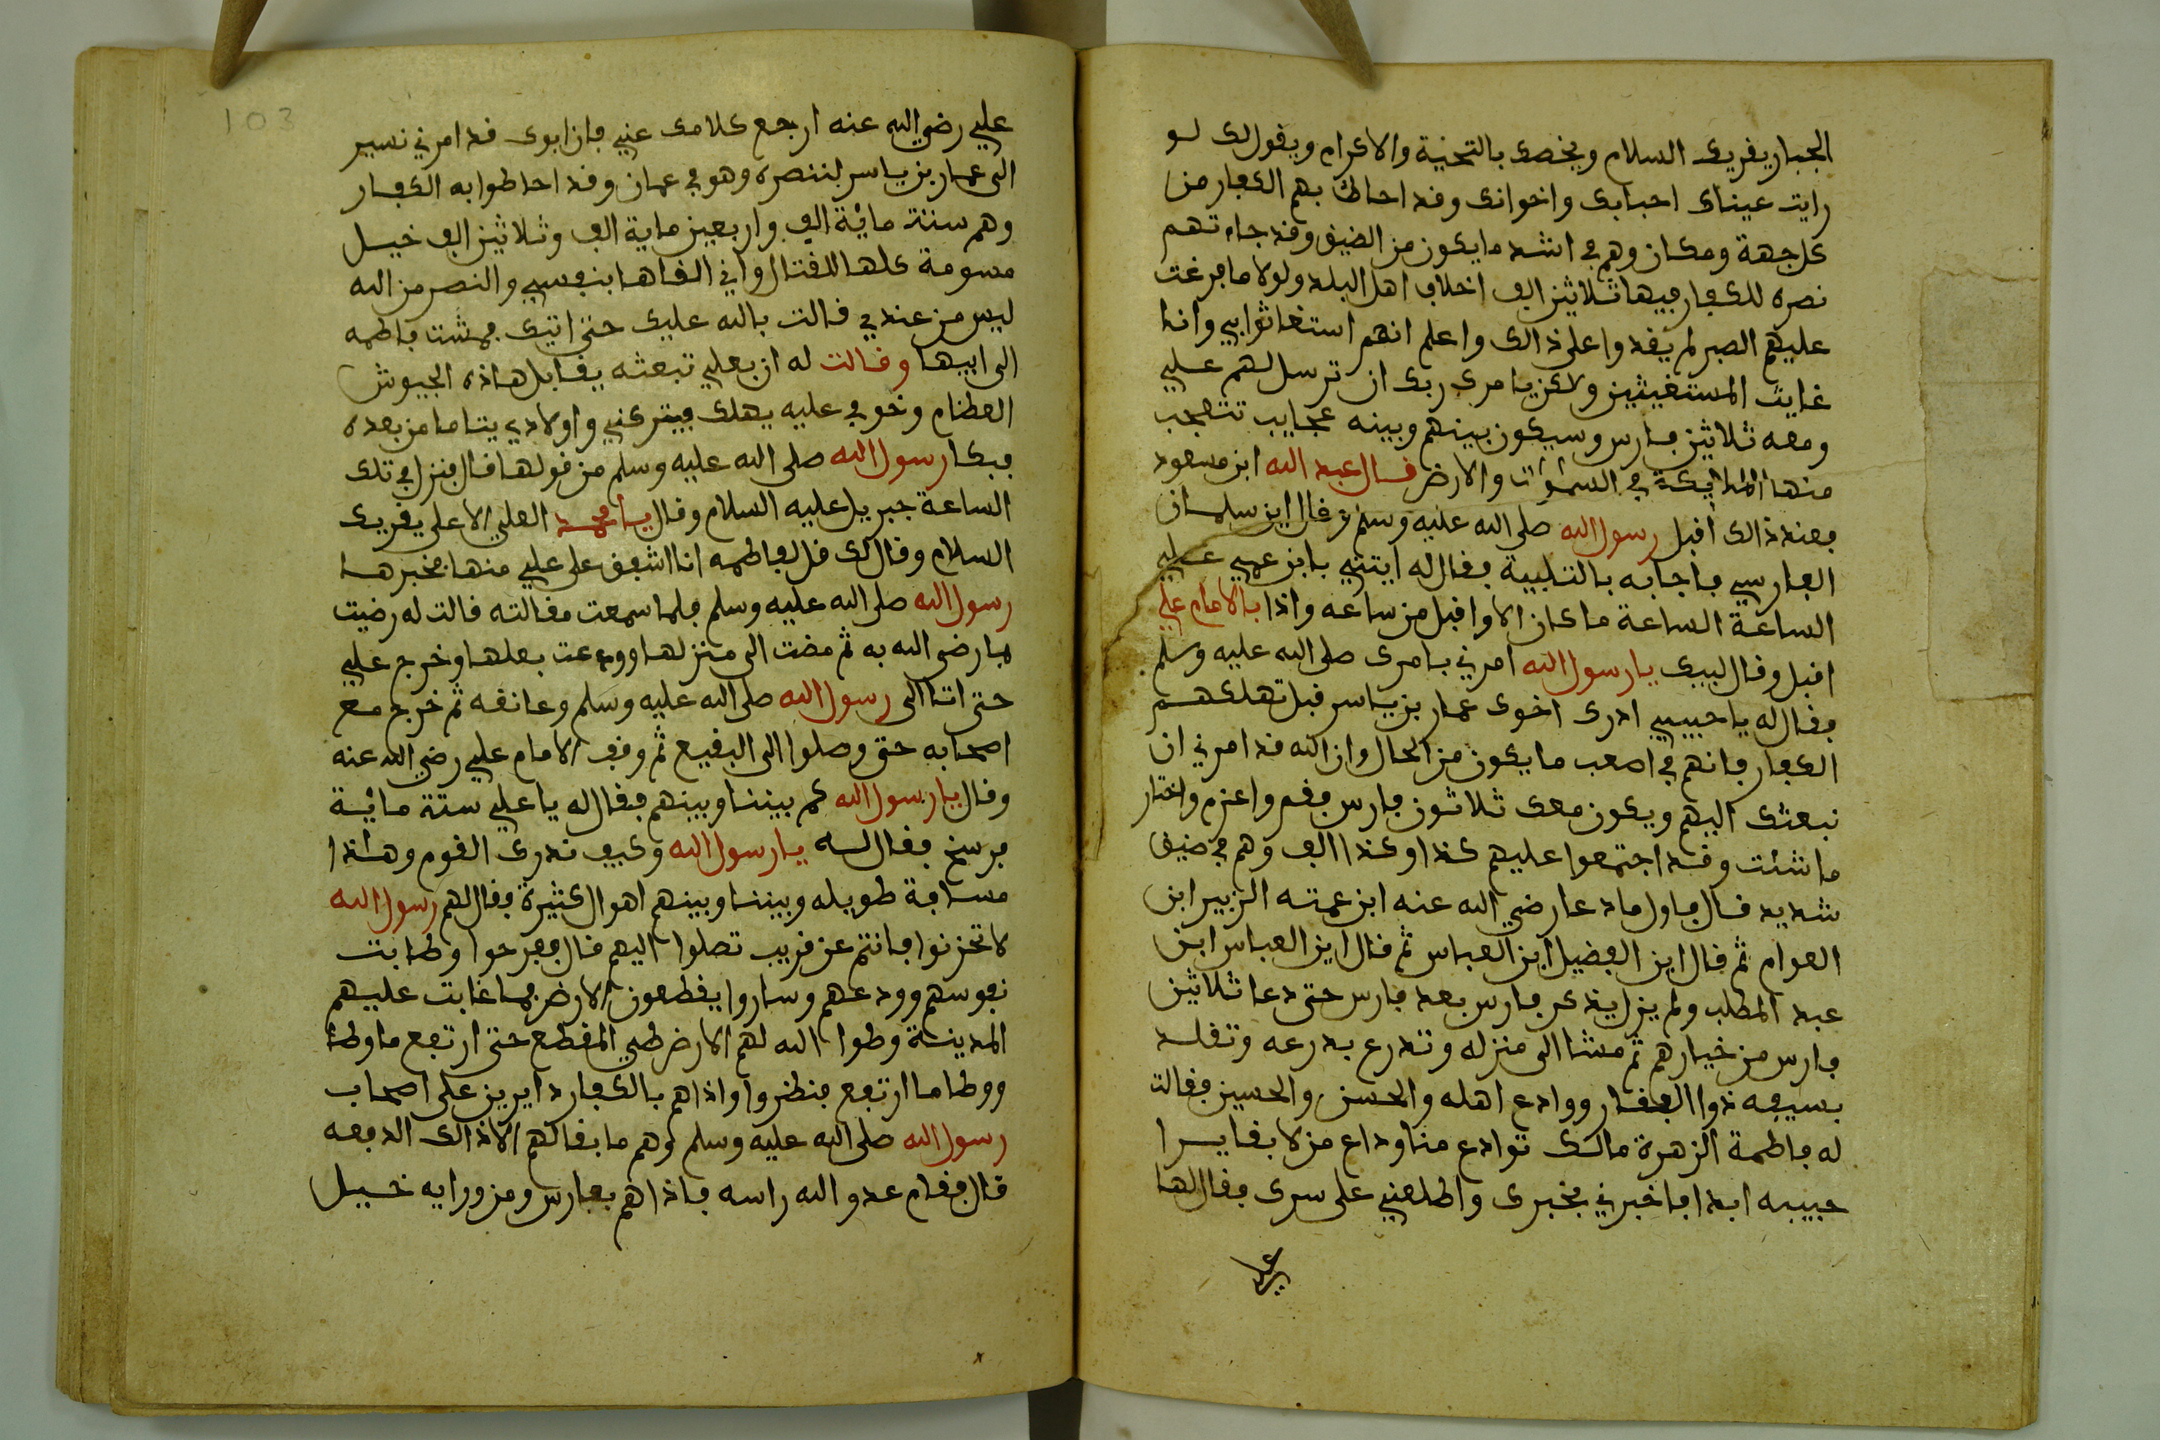 الجبار يقريك السلام ويخصك بالتحية والاكرام ويقول لك لو
رايت عيناك احبابك واخوانك وقد احاطت بهم الكفار من
كل جهة ومكان وهم في اشد ما يكون من الضيق وقد جاءتهم
نصره للكفار فيها ثلاثين الف اخلاف اهل البلد ولولا ما فرغت
عليهم الصبر لم يقدوا على ذالك واعلم انهم استغاثوا بي وانا
غايث المستغيثين ولاكن يامرك ربك ان ترسل لهم علي
ومعه ثلاثين فارس وسيكون بينهم وبينه عجايب تتعجب
منها الملايكة في السموات والارض قال عبد الله ابن مسعود
فعند ذالك اقبل رسول الله صلى الله عليه وسلم وقال اين سلمان
الفارسي فاجابه بالتلبية فقال له ايتني بابن عمي علي
الساعة الساعة ما كان الا واقبل من ساعه واذا بالامام علي
اقبل وقال لبيك يا رسول الله امرني بامرك صلى الله عليه وسلم
فقال له يا حبيبي ادرك اخوك عمار بن ياسر قبل تهلكهم
الكفار فانهم في اصعب ما يكون من الحال وان الله قد امرني ان
نبعثك اليهم ويكون معك ثلاثون فارس فقم واعزم واختار
ما شئت وقد اجتمعوا عليهم كذا وكذا الف وهم في ضيق
شديد قال فاول ما دعا رضي الله عنه ابن عمته الزبير ابن
العوام ثم قال اين الفضيل ابن العباس ثم قال اين العباس ابن
عبد المطلب ولم يزل يذكر فارس بعد فارس حتى دعا ثلاثين
فارس من خيارهم ثم مشا الى منزله وتدرع بدرعه وتقلد
بسيفه ذوا الفقار ووادع اهله والحسن والحسين فقالت
له فاطمة الزهرة مالك توادع منا وداع من لا بقا يرا
حبيبه ابدا فاخبرني بخبرك واطلعني على سرك فقال لها
علي
علي رضي الله عنه ارجع كلامك عني فان ابوك قد امرني نسير
الى عمار بن ياسر لننصره وهو في عمان وقد احاطوا به الكفار
وهم ستة مائة الف واربعين ماية الف وثلاثين الف خيل
مسومة كلها للقتال واني القاها بنفسي والنصر من الله
ليس من عندي قالت بالله عليك حتى اتيك فمشت فاطمه
الى ابيها وقالت له ان بعلي تبعثه يقابل هاذه الجيوش
العظام وخوفي عليه يهلك فيتركني واولادي يتاما من بعده
فبكا رسول الله صلى الله عليه وسلم من قولها قال فنزل في تلك
الساعة جبريل عليه السلام وقال يا محمد العلي الاعلى يقريك
السلام وقال لك قل لفاطمه انا اشفق على علي منها فخبرها
رسول الله صلى الله عليه وسلم فلما سمعت مقالته قالت له رضيت
بما رضى الله به ثم مضت الى منزلها وودعت بعلها وخرج علي
حتى اتا الى رسول الله صلى الله عليه وسلم وعانقه ثم خرج مع
اصحابه حتى وصلوا الى البقيع ثم وقف الامام علي رضي الله عنه
وقال يا رسول الله كم بيننا وبينهم فقال له يا علي ستة مائية
فرسخ فقال له يا رسول الله وكيف ندرك القوم وهاذا
مسافة طويله وبيننا وبينهم اهوال كثيرة فقال لهم رسول الله
لا تحزنوا فانتم عن قريب تصلوا اليهم قال ففرحوا وطابت
نفوسهم وودعهم وساروا يقطعون الارض فما غابت عليهم
المدينة وطوا الله لهم الارض طي المقطع حتى ارتفع ما وطا
ووطا ما ارتفع فنظروا واذا هم بالكفار دايرين على اصحاب
رسول الله صلى الله عليه وسلم وهم ما بقا لهم الا ذالك الدفعه
قال فقام عدو الله راسه فاذا هم بفارس ومن ورايه خيل
103